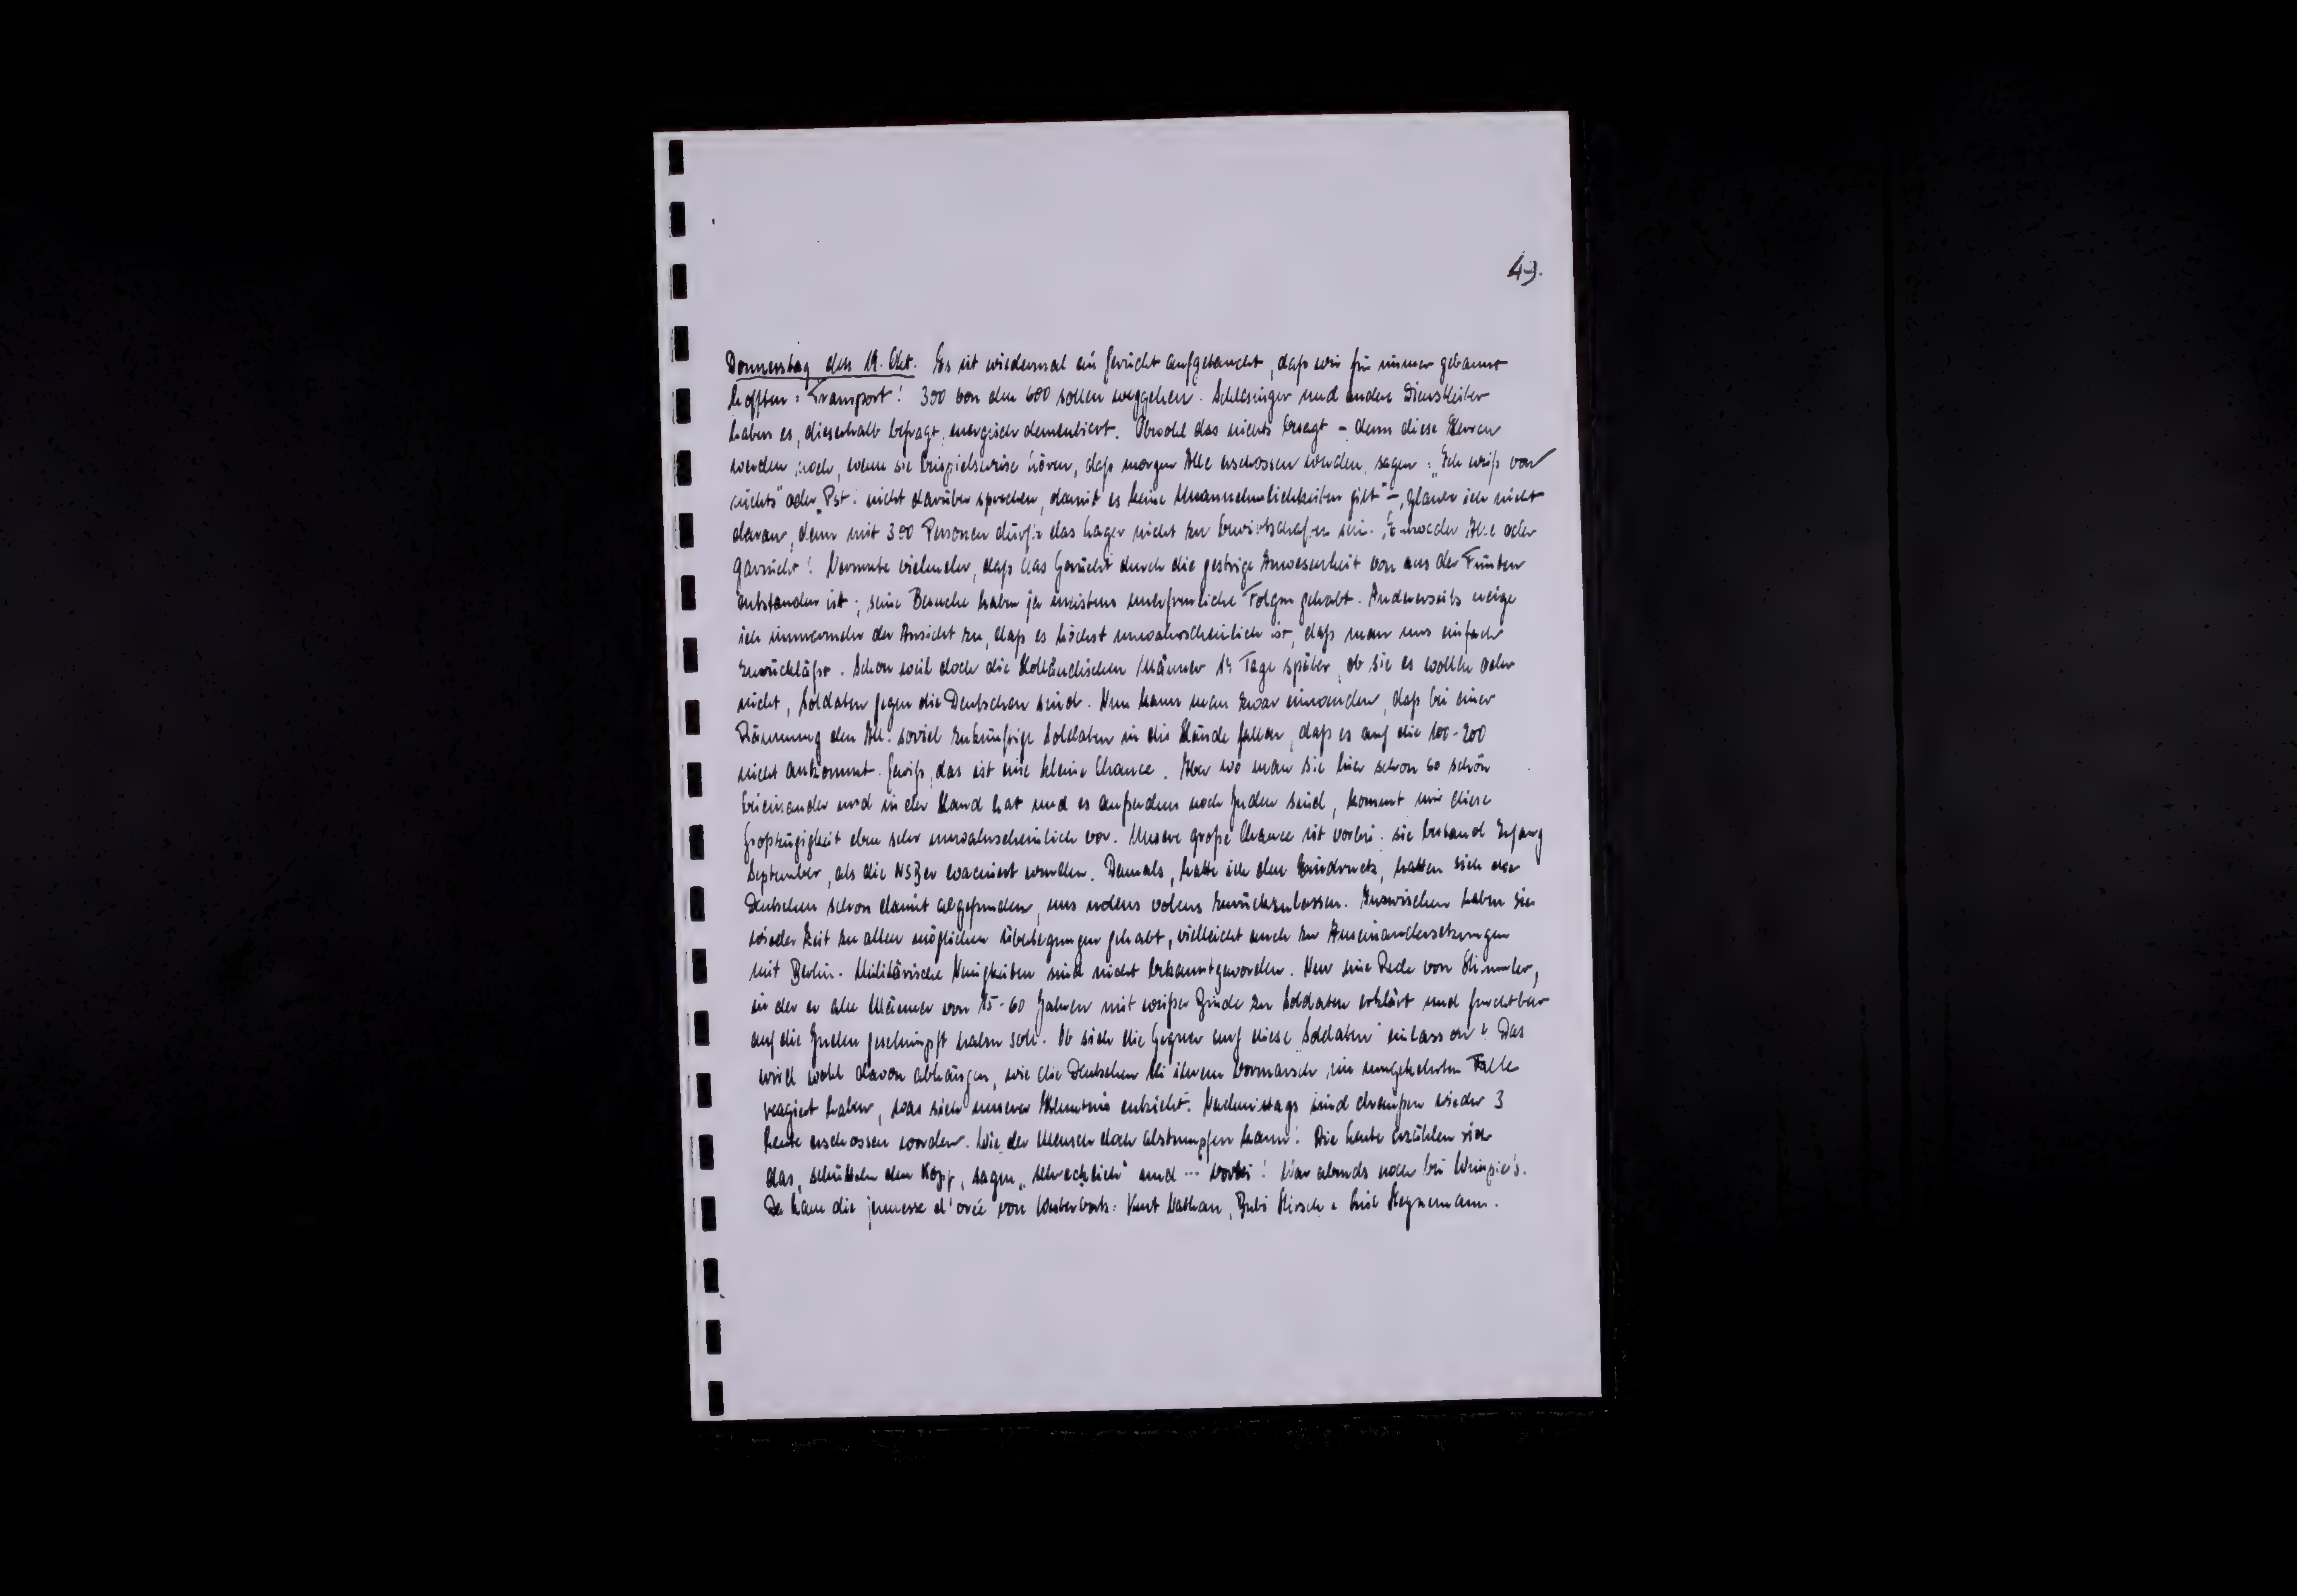 49.
Donnerstag den 19. Okt. Es ist wiedermal ein Gerücht aufgetaucht, daß wir für immer gebannt
hofften: Transport! 300 von den 600 sollen weggehen. Schlesinger und andere Dienstleiter
haben es, dieserhalb befragt, energisch dementiert. Obwohl das nichts besagt – denn diese Herren
werden, auch, wenn sie beispielsweise hören, daß morgen Alle erschossen werden, sagen: „Ich weiß von
nichts" oder „Pst! nicht darüber sprechen, damit es keine Unannehmlichkeiten gibt" –, glaube ich nicht
daran, denn mit 300 Personen dürfte das Lager nicht zu bewirtschaften sein. Entweder Alle oder
garnicht! Vermute vielmehr, daß das Gerücht durch die gestrige Anwesenheit von aus der Fünten
entstanden ist; seine Besuche haben ja meistens unerfreuliche Folgen gehabt. Andererseits neige
ich immermehr der Ansicht zu, daß es höchst unwahrscheinlich ist, daß man uns einfach
zurückläßt. Schon weil doch die Holländischen Männer 14 Tage später, ob sie es wollen oder
nicht, Soldaten gegen die Deutschen sind. Nun kann man zwar einwenden, daß bei einer
Räumung den All. soviel zukünftige Soldaten in die Hände fallen, daß es auf die 100-200
nicht ankommt. Gewiß, das ist eine kleine Chance. Aber wo man sie hier schon so schön
beieinander und in der Hand hat und es außerdem noch Juden sind, kommt mir diese
Großzügigkeit eben sehr unwahrscheinlich vor. Unsere große Chance ist vorbei: sie bestand Anfang
September, als die NSBer evacuiert wurden. Damals, hatte ich den Eindruck, hatten sich die
Deutschen schon damit abgefunden, uns nolens volens zurückzulassen. Inzwischen haben sie
wieder Zeit zu allen möglichen Überlegungen gehabt, vielleicht auch zu Auseinandersetzungen
mit Berlin. Militärische Neuigkeiten sind nicht bekanntgeworden. Nur eine Rede von Himmler,
in der er alle Männer von 15-60 Jahren mit weißer Binde zu Soldaten erklärt und furchtbar
auf die Juden geschimpft haben soll. Ob sich die Gegner auf diese „Soldaten" einlassen? Das
wird wohl davon abhängen, wie die Deutschen bei ihrem Vormarsch im umgekehrten Falle
reagiert haben, was sich unserer Kenntnis entzieht. Nachmittags sind draußen wieder 3
Leute erschossen worden. Wie der Mensch doch abstumpfen kann! Die Leute erzählen sich
das, schütteln den Kopf, sagen „schrecklich" und ... vorbei! War abends noch bei
Da kam die jeunesse d'orée von Westerbork: Kurt Nathan, Bubi Hirsch &